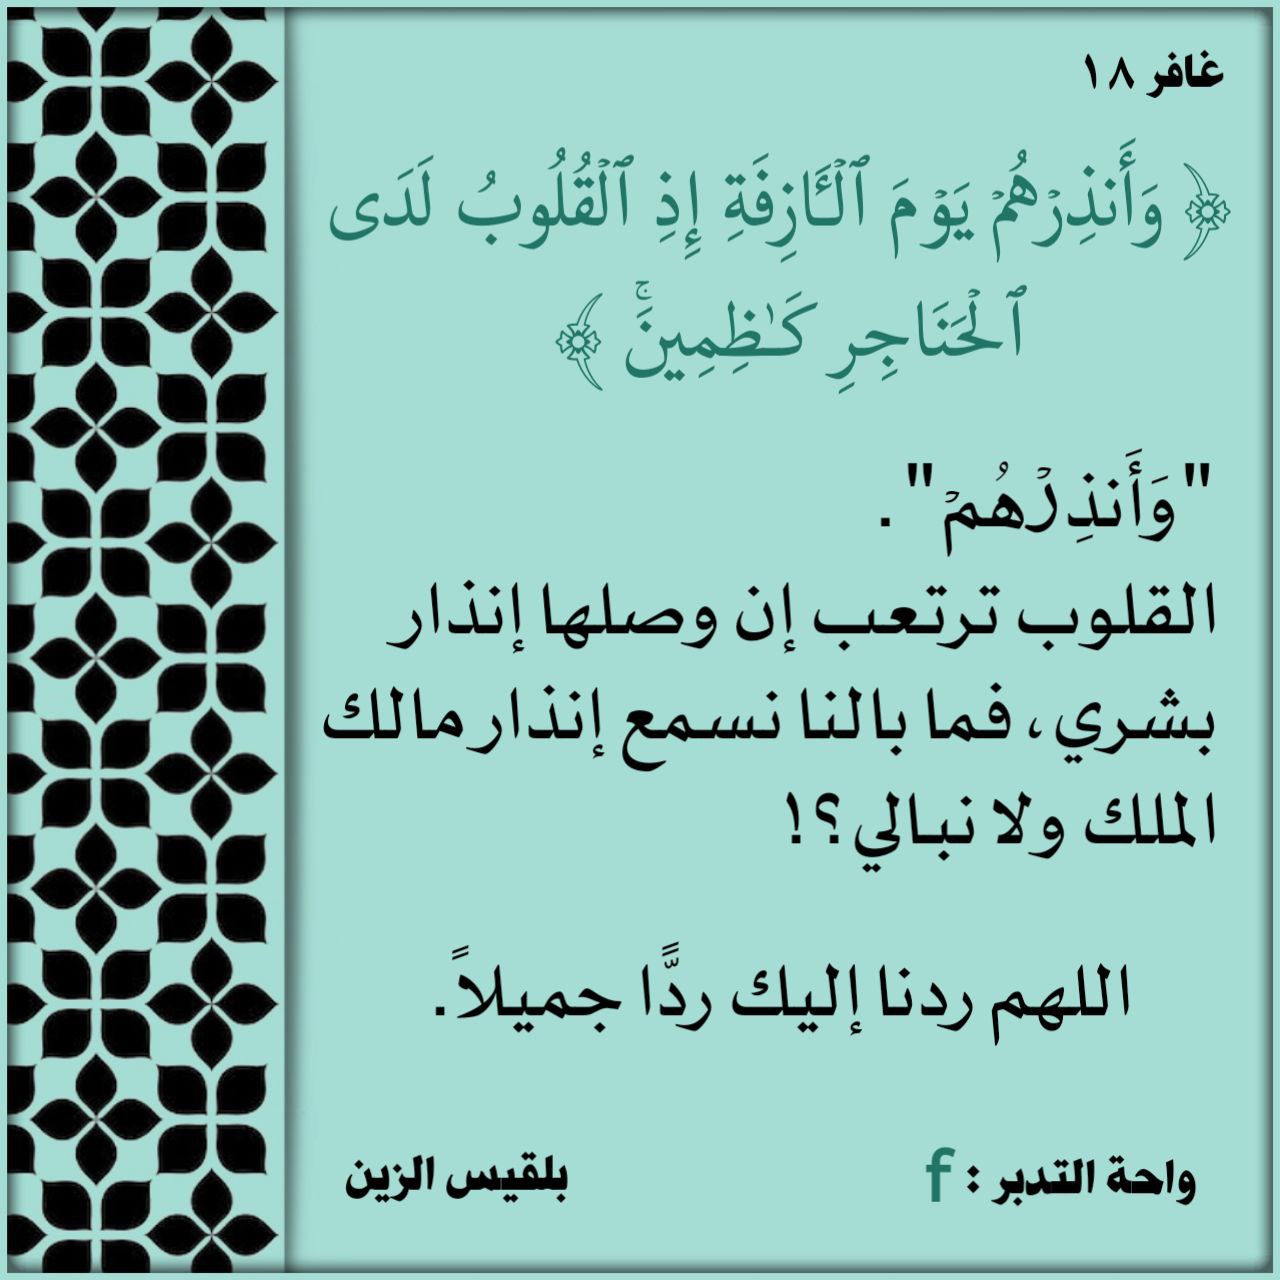 غافر ١٨
﴿ وَأَنذِرْهُمْ يَوْمَ ٱلْـَٔازِفَةِ إِذِ ٱلْقُلُوبُ لَدَى
ٱلْحَنَاجِرِ كَـٰظِمِينَ ۚ ﴾
"وَأَنذِرْهُمْ".
القلوب ترتعب إن وصلها إنذار
بشري، فما بالنا نسمع إنذار مالك
الملك ولا نبالي؟!
اللهم ردنا إليك ردًّا جميلاً.
واحة التدبر : f
بلقيس الزين